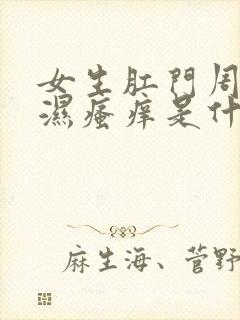 女生肛門周
濕瘙痒是什
麻生海、菅野